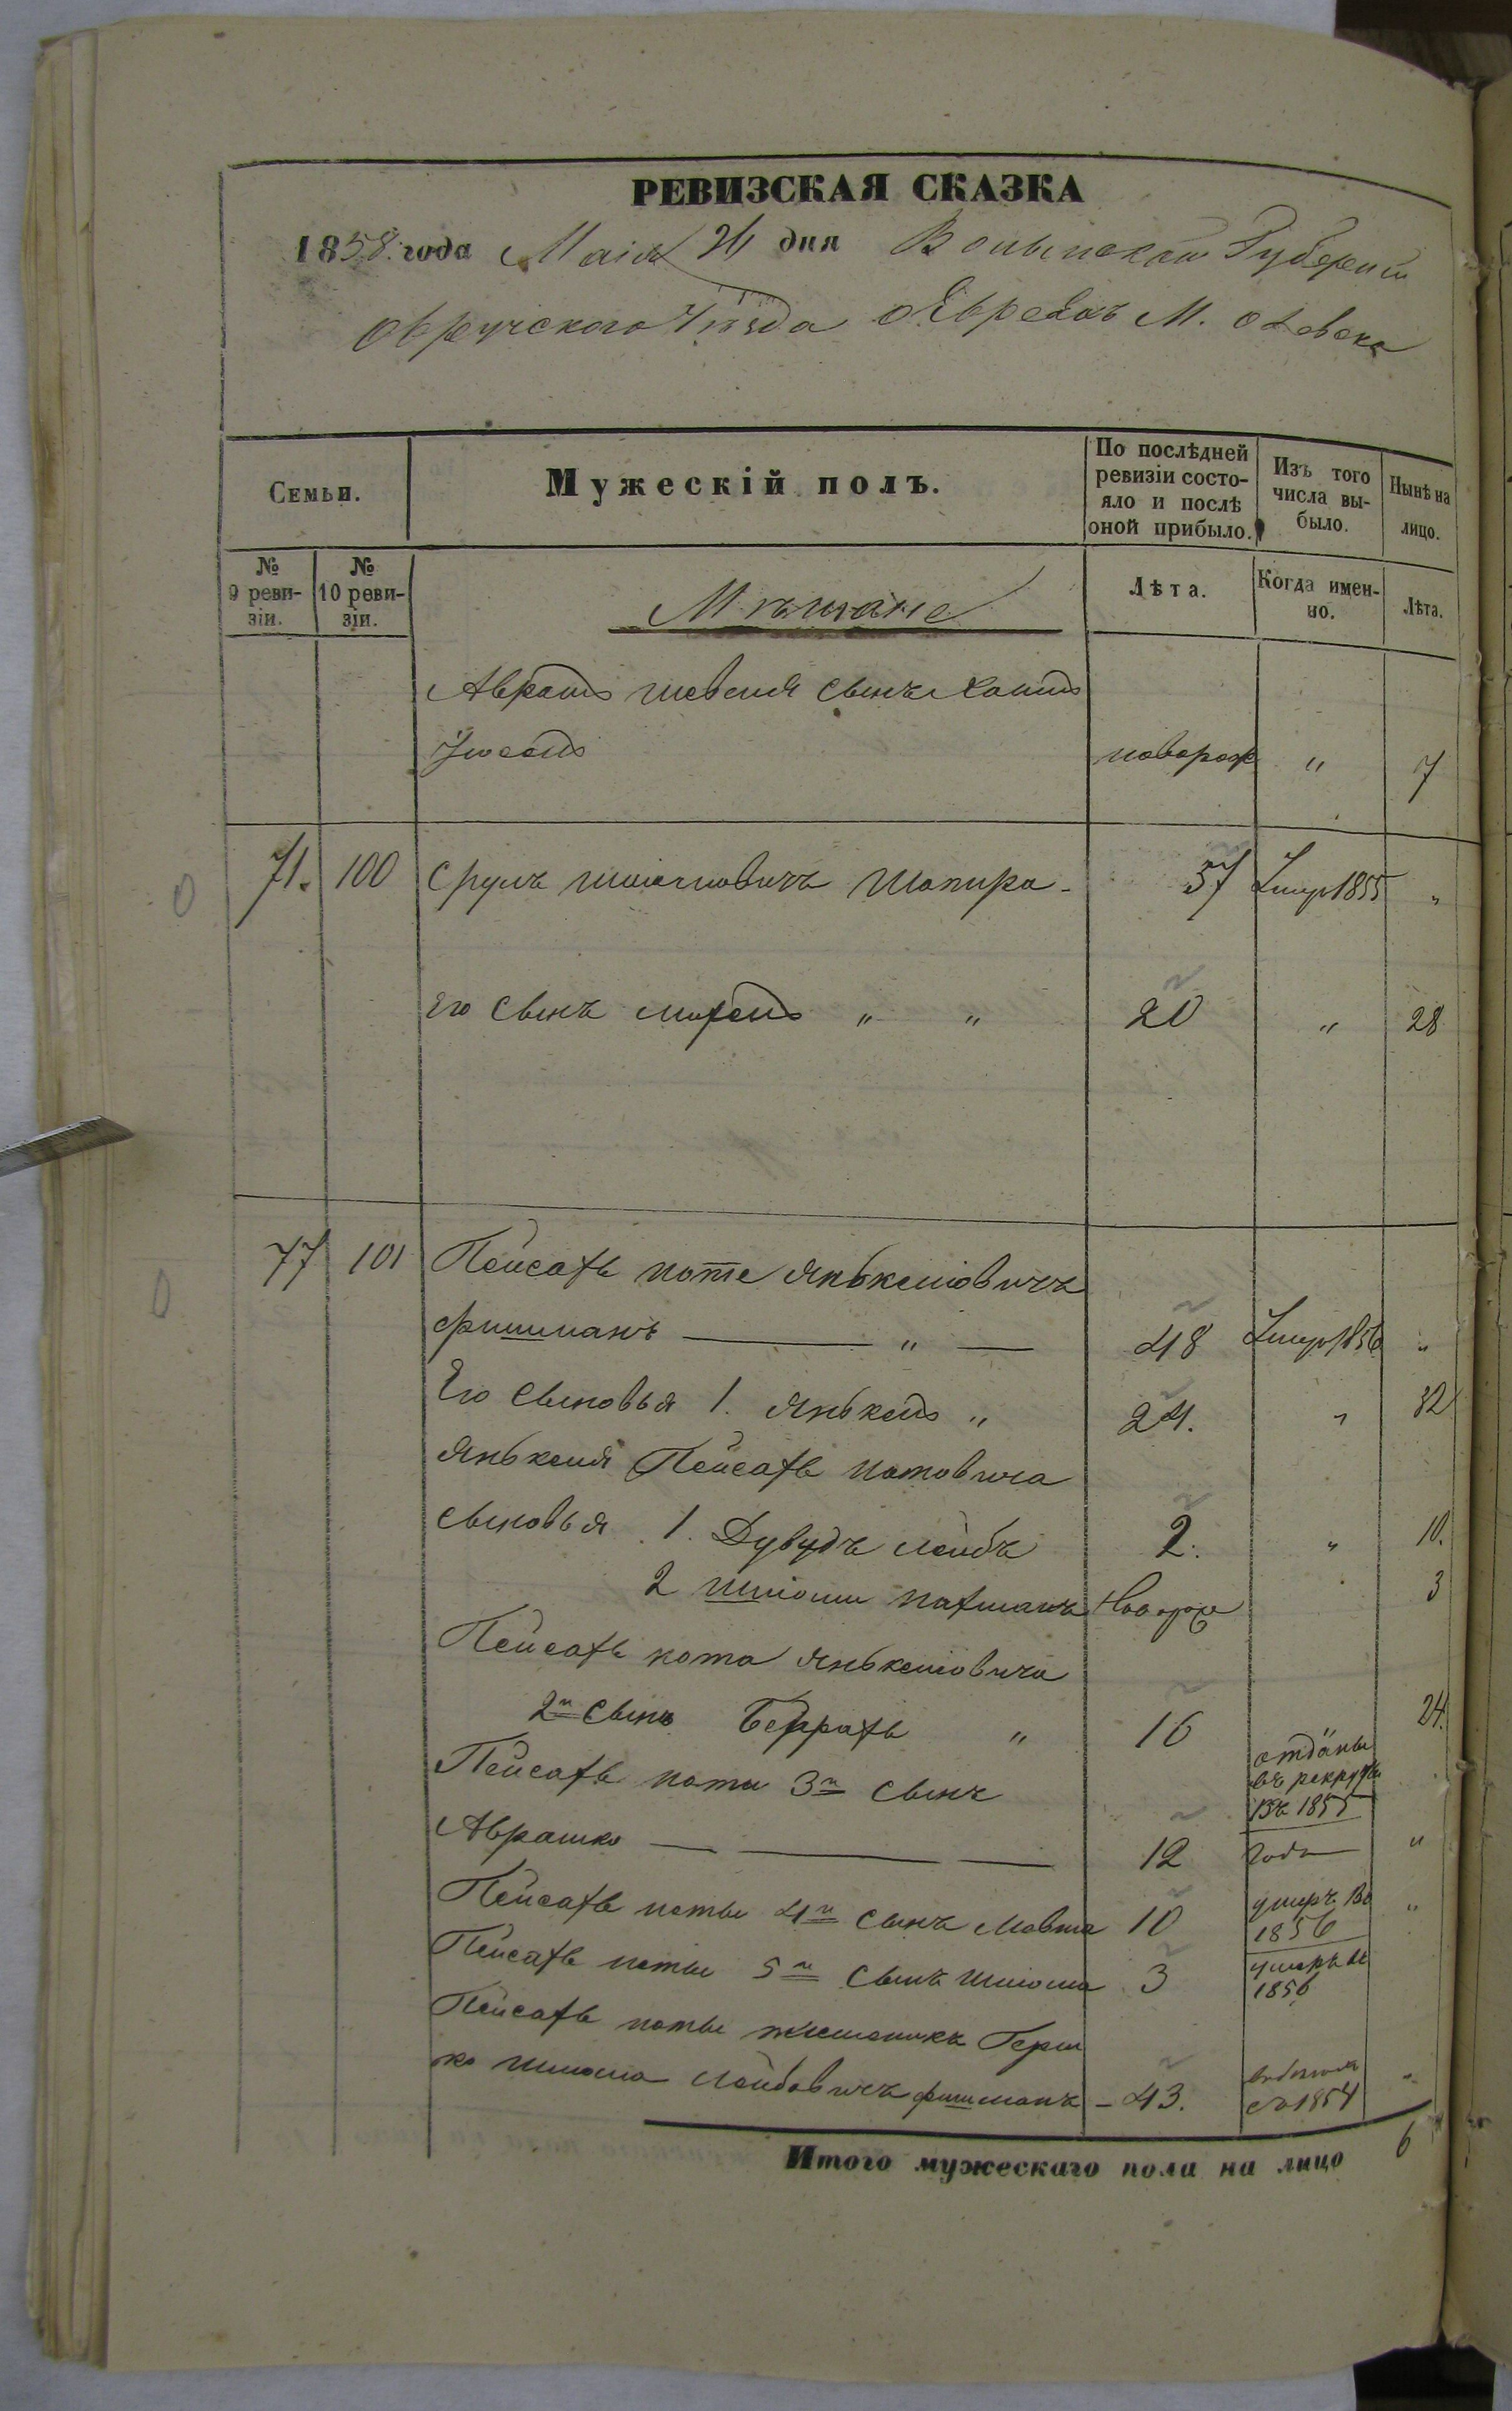 РЕВИЗСКАЯ СКАЗКА
1858 года Маія 26 дня Волынской Губерніи
Овручского Уѣзда о Евреяхъ М. Олевска
Семьи.
Мужескій полъ.
По послѣдней ревизіи состо-
яло и послѣ
оной прибыло.
Изъ того
числа вы-
было.
Нынѣ на
лицо.
№
9 реви-
зіи.
№
10 реви-
зіи.
Мѣщане
Лѣта.
Когда имен-
но.
Лѣта.
Аврамъ сынъ Хаимъ
новорож " 7
71. 100 Сруль Шапира - 57 Умер 1855 "
Его сынъ " " 20 " 28
77 101 Пейсахъ Ноте Янькелiовичъ
Фишманъ — " — 48 Умер 1856 "
Его сыновья 1. Янькель " 24. " 32
Янькеля Пейсахъ Нотовича
сыновья 1. Дувудъ Лейбъ 2. " 10.
2 Шлiома Нахманъ Новорож 3
Пейсахъ Нота Янькелiовича
2й сынъ Беррахъ " 16 24.
Пейсахъ Ноты 3й сынъ
отданъ
въ рекруты
въ 1855
Аврашко — — — 12 года "
Пейсахъ Ноты 4й сынъ Мовша 10 умеръ во "
1856
Пейсахъ Ноты 5й сынъ Шлiома 3 умеръ въ
1856
Пейсахъ Ноты племяникъ Герш
ко Шлiома Лейбовичъ Фишманъ - 43. "
съ 1854
Итого мужескаго пола на лицо 6